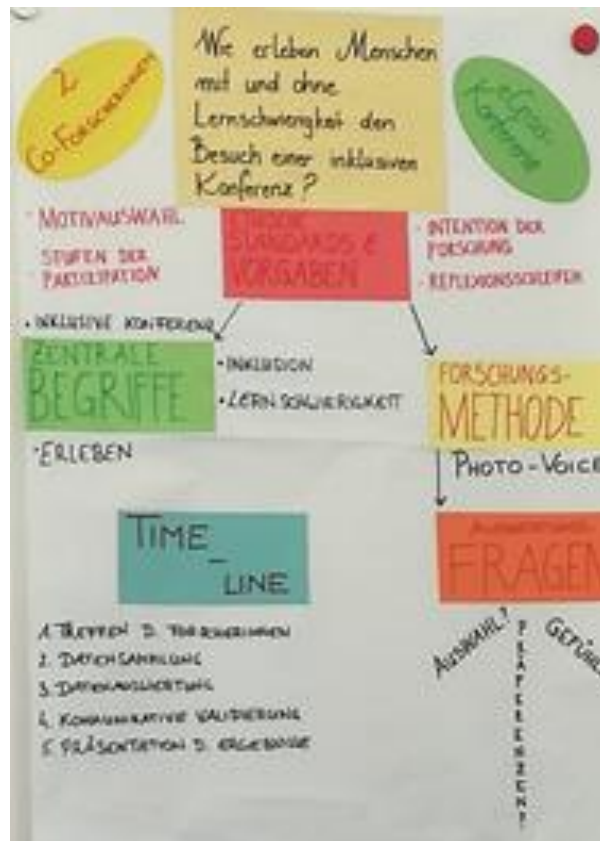 2
Co-Forscherinnen
Wie erleben Menschen
mit und ohne
Lernschwierigkeit den
Besuch einer inklusiven
Konferenz?
Konferenz
• MOTIVAUSWAHL
• STUFEN DER
PARTIZIPATION
STANDARDS &
VORGABEN
• INTENTION DER
FORSCHUNG
• REFLEXIONSSCHLEIFEN
• INKLUSIVE KONFERENZ
ZENTRALE
BEGRIFFE
• INKLUSION
• LERNSCHWIERIGKEIT
• ERLEBEN
FORSCHUNGS-
METHODE
PHOTO-VOICE
TIME
–
LINE
FRAGEN
1. TREFFEN D. FORSCHERINNEN
2. DATENSAMMLUNG
3. DATENAUSWERTUNG
4. KOMMUNIKATIVE VALIDIERUNG
5. PRÄSENTATION D. ERGEBNISSE
AUSWAHL?
PRÄFERENZEN?
GEFÜHL